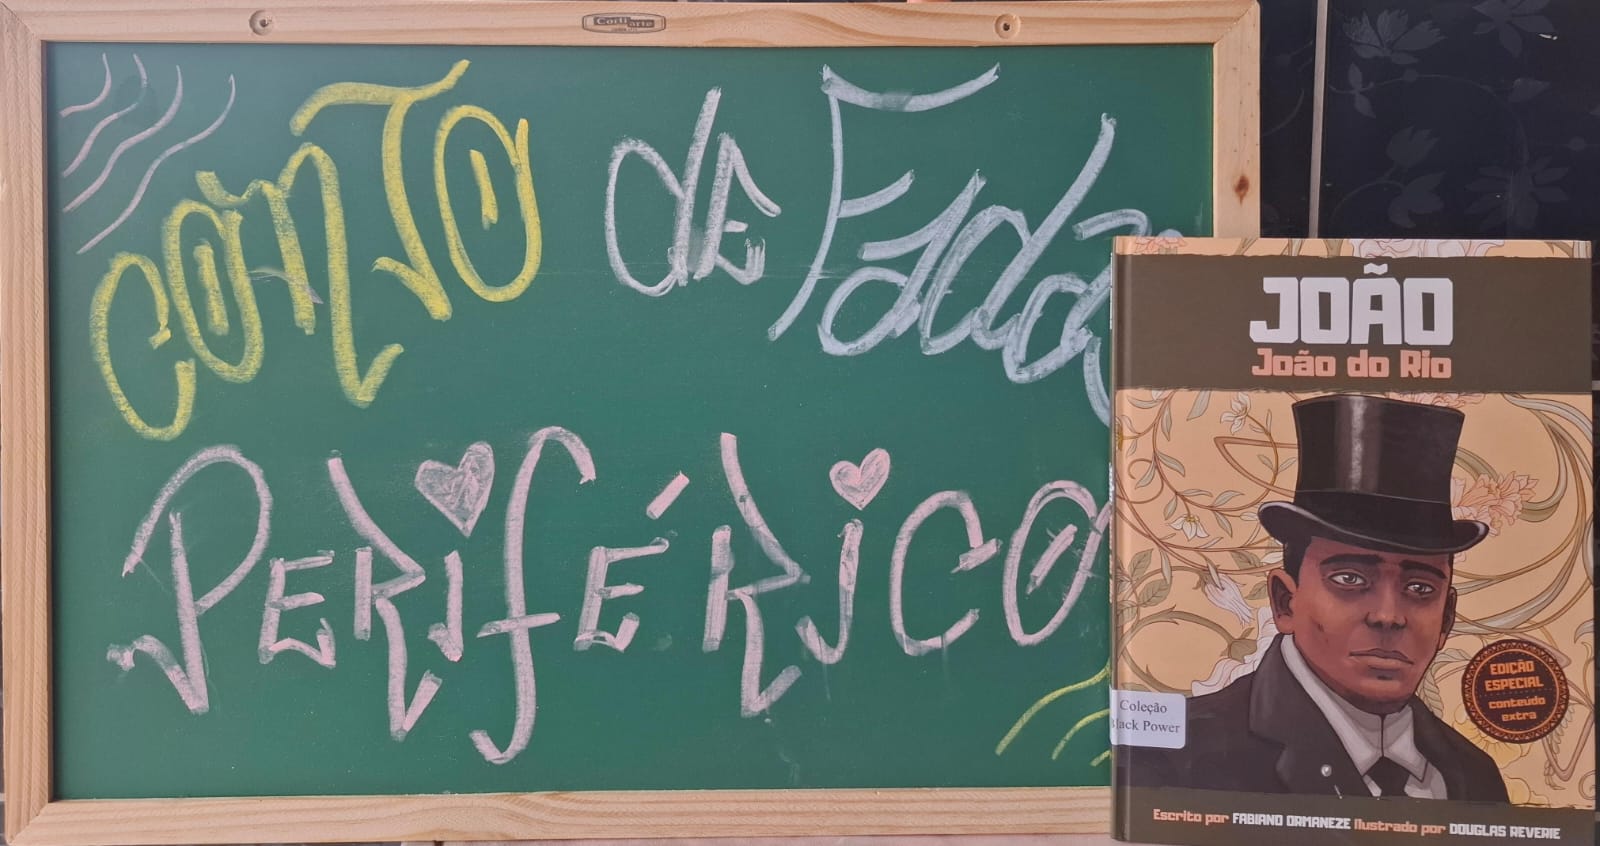 Corti arte
CONTO de Fada
PERIFÉRICO
JOÃO
João do Rio
EDIÇÃO
ESPECIAL
conteúdo
extra
Coleção
Black Power
Escrito por FABIANO ORMANEZE Ilustrado por DOUGLAS REVERIE